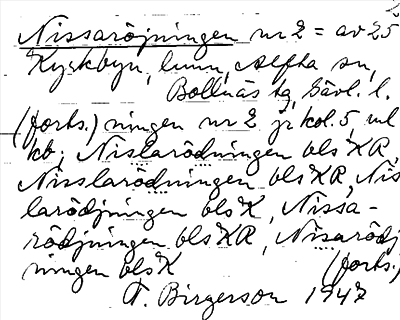 Nissaröjningen nr 2 = av 25
Kyrkbyn, linn, Alfta sn,
Bollnäs tg, Gävl. l.
(forts.) ningen nr 2 jr kol. 5, ul
kb; Nislarödningen bls KR,
Nisslarödningen bls KR, Nis
larödjningen bls K, Nissa-
rödjningen bls KR, Nisarödj
ningen bls K (forts.)
T. Birgerson 1947